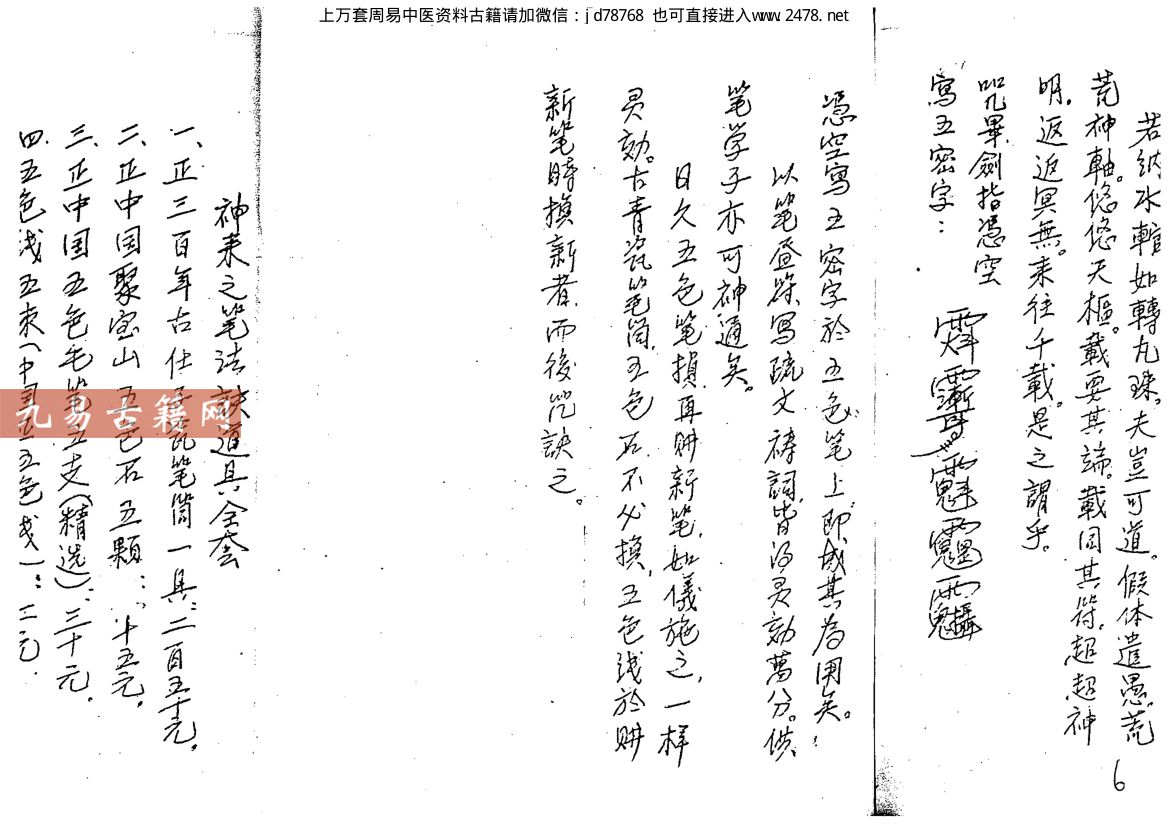 上万套周易中医资料古籍请加微信：jd78768 也可直接进入www.2478.net
若納水輨如轉丸珠。夫豈可道。假体遣愚。荒
荒神軸。悠悠天樞。載要其端。載同其符。超超神
明。返返冥無。来往千載。是之謂乎。
咒畢劍指憑空
寫五密字：
憑空寫五密字於五色笔上，即成其為用矣。
以笔登符，寫疏文祷詞，皆得灵効萬分。供
笔学子亦可神通矣。
日久五色笔損，再耕新笔，如儀施之，一样
灵効。古青瓷笔筒，五色石不必換，五色浅於耕
新笔時換新者，而後咒訣之。
神来之笔法訣道具全套
一、正三百年古仕瓷笔筒一具：二百五十元。
二、正中国聚宝山五色石五顆：十五元。
三、正中国五色毛笔五支（精选）：三十元。
四、五色浅五束（中国五色浅）：二元。
九易古籍网
6